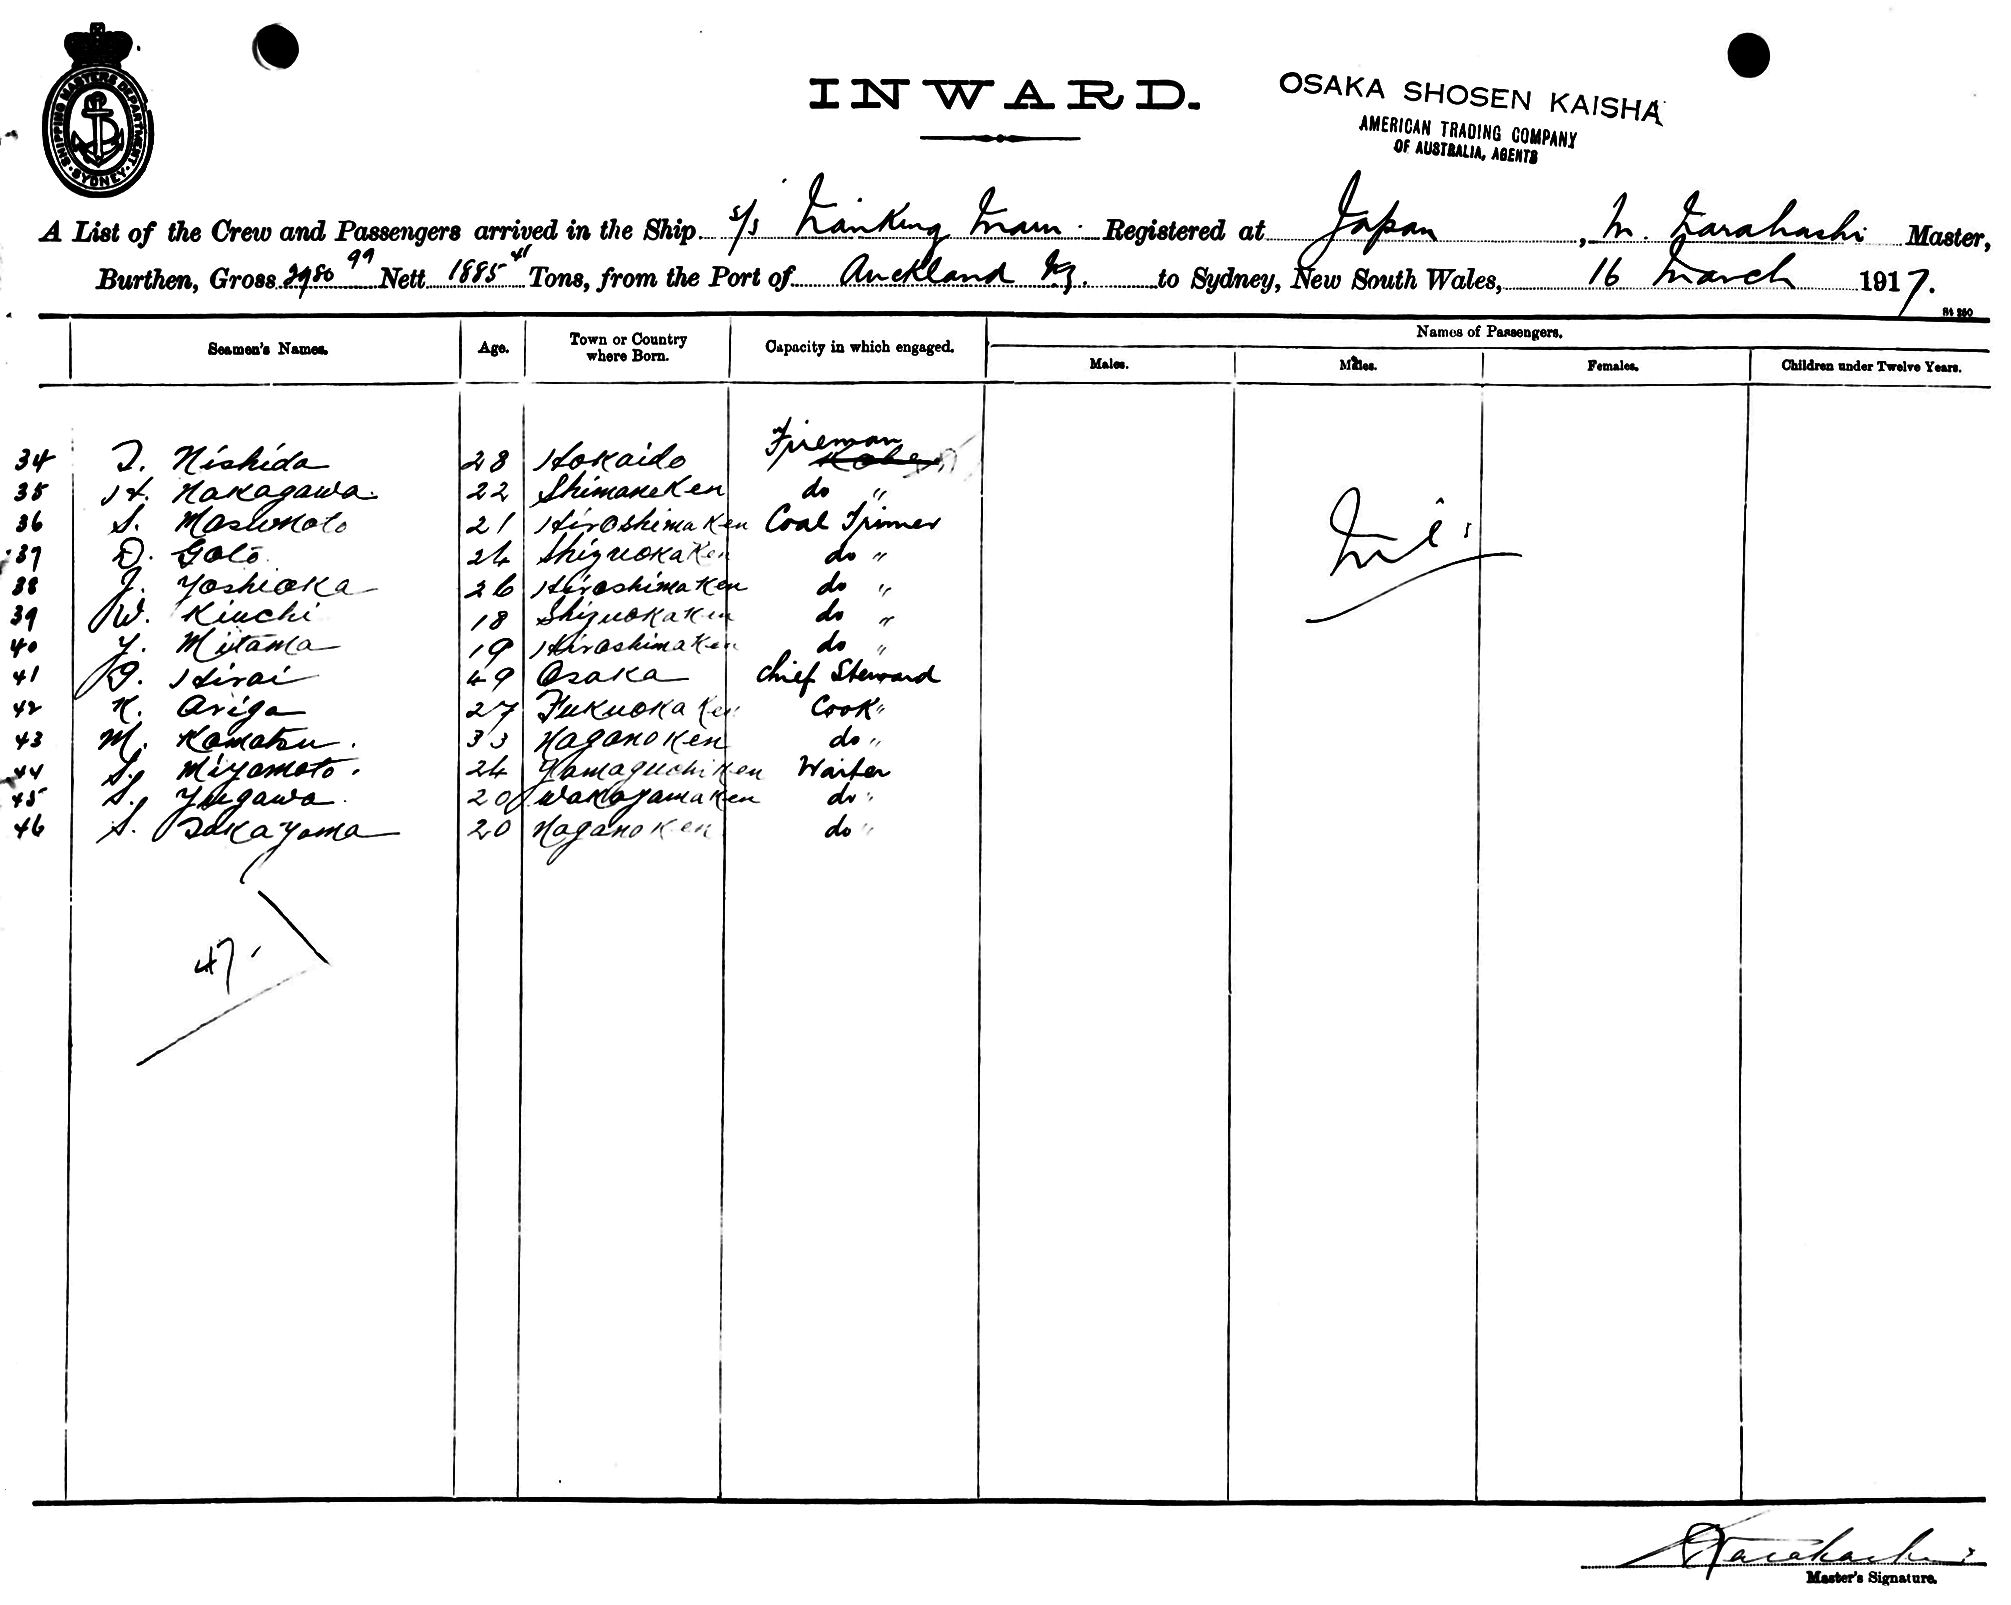 SHIPPING MASTERS DEPARTMENT
SYDNEY
INWARD.
OSAKA SHOSEN KAISHA
AMERICAN TRADING COMPANY
OF AUSTRALIA, AGENTS
A List of the Crew and Passengers arrived in the Ship s/s Nanking Maru. Registered at Japan, N. Narahashi Master,
Burthen, Gross 2980 99 Nett 1885 41 Tons, from the Port of Auckland N.Z. to Sydney, New South Wales, 16 March 1917.
Seamen's Names. Age. Town or Country where Born. Capacity in which engaged. Names of Passengers.
Males. Males. Females. Children under Twelve Years.
34 T. Nishida 28 Hokaido Fireman
35 H. Nakagawa. 22 Shimaneken do "
36 S. Masumoto 21 Hiroshimaken Coal Trimer
37 D. Goto 24 Shizuokaken do "
38 J. Yoshioka 26 Hiroshimaken do "
39 W. Kiuchi 18 Shizuokaken do "
40 Y. Mitama 19 Hiroshimaken do "
41 G. Hirai 49 Osaka Chief Steward
42 K. Ariga 27 Fukuokaken Cook "
43 M. Komatsu. 33 Naganoken do "
44 S. Miyamoto. 24 Yamaguchiken Waiter
45 S. Yugawa. 20 Wakayamaken do "
46 S. Takayama 20 Naganoken do "
Nil
47.
Narahashi
Master's Signature.